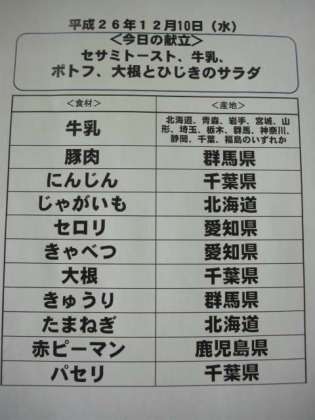 平成26年12月10日（水）
＜今日の献立＞
セサミトースト、牛乳、
ポトフ、大根とひじきのサラダ
＜食材＞ ＜産地＞
牛乳 北海道、青森、岩手、宮城、山
形、埼玉、栃木、群馬、神奈川、
静岡、千葉、福島のいずれか
豚肉 群馬県
にんじん 千葉県
じゃがいも 北海道
セロリ 愛知県
きゃべつ 愛知県
大根 千葉県
きゅうり 群馬県
たまねぎ 北海道
赤ピーマン 鹿児島県
パセリ 千葉県